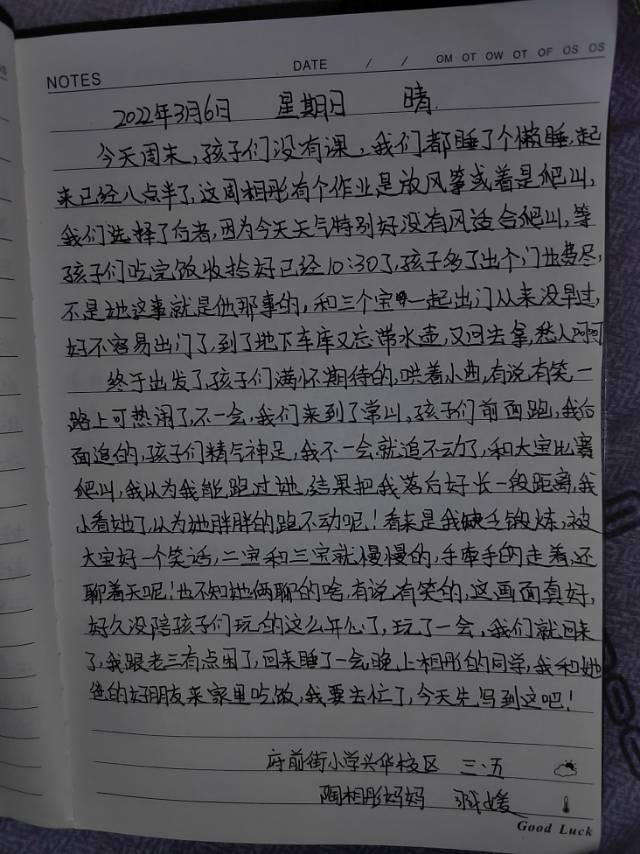 NOTES
DATE / / OM OT OW OT OF OS OS
2022年3月6日 星期日 晴
今天周末,孩子们没有课,我们都睡了个懒睡,起
来已经八点半了,这周相彤有个作业是放风筝或着是爬山,
我们选择了后者,因为今天天气特别好没有风适合爬山,等
孩子们吃完饭收拾好已经10:30了,孩子多了出个门也费尽,
不是她这事就是他那事的,和三个宝一起出门从来没早过,
好不容易出门了,到了地下车库又忘带水壶,又回去拿,愁人呵呵
终于出发了,孩子们满怀期待的,哄着小曲,有说有笑一
路上可热闹了,不一会,我们来到了常山,孩子们前面跑,我后
面追的,孩子们精气神足,我不一会就追不动了,和大宝比赛
爬山,我以为我能跑过她,结果把我落后好长一段距离,我
小看她了,以为她胖胖的跑不动呢!看来是我缺乏锻炼,被
大宝好一个笑话,二宝和三宝就慢慢的,手牵手的走着,还
聊着天呢!也不知她俩聊的啥,有说有笑的,这画面真好,
好久没陪孩子们玩的这么开心了,玩了一会,我们就回来
了,我跟老三有点困了,回来睡了一会,晚上相彤的同学,我和她
的好朋友来家里吃饭,我要去忙了,今天先写到这吧!
府前街小学兴华校区 三·五
陶相彤妈妈 媛
Good Luck